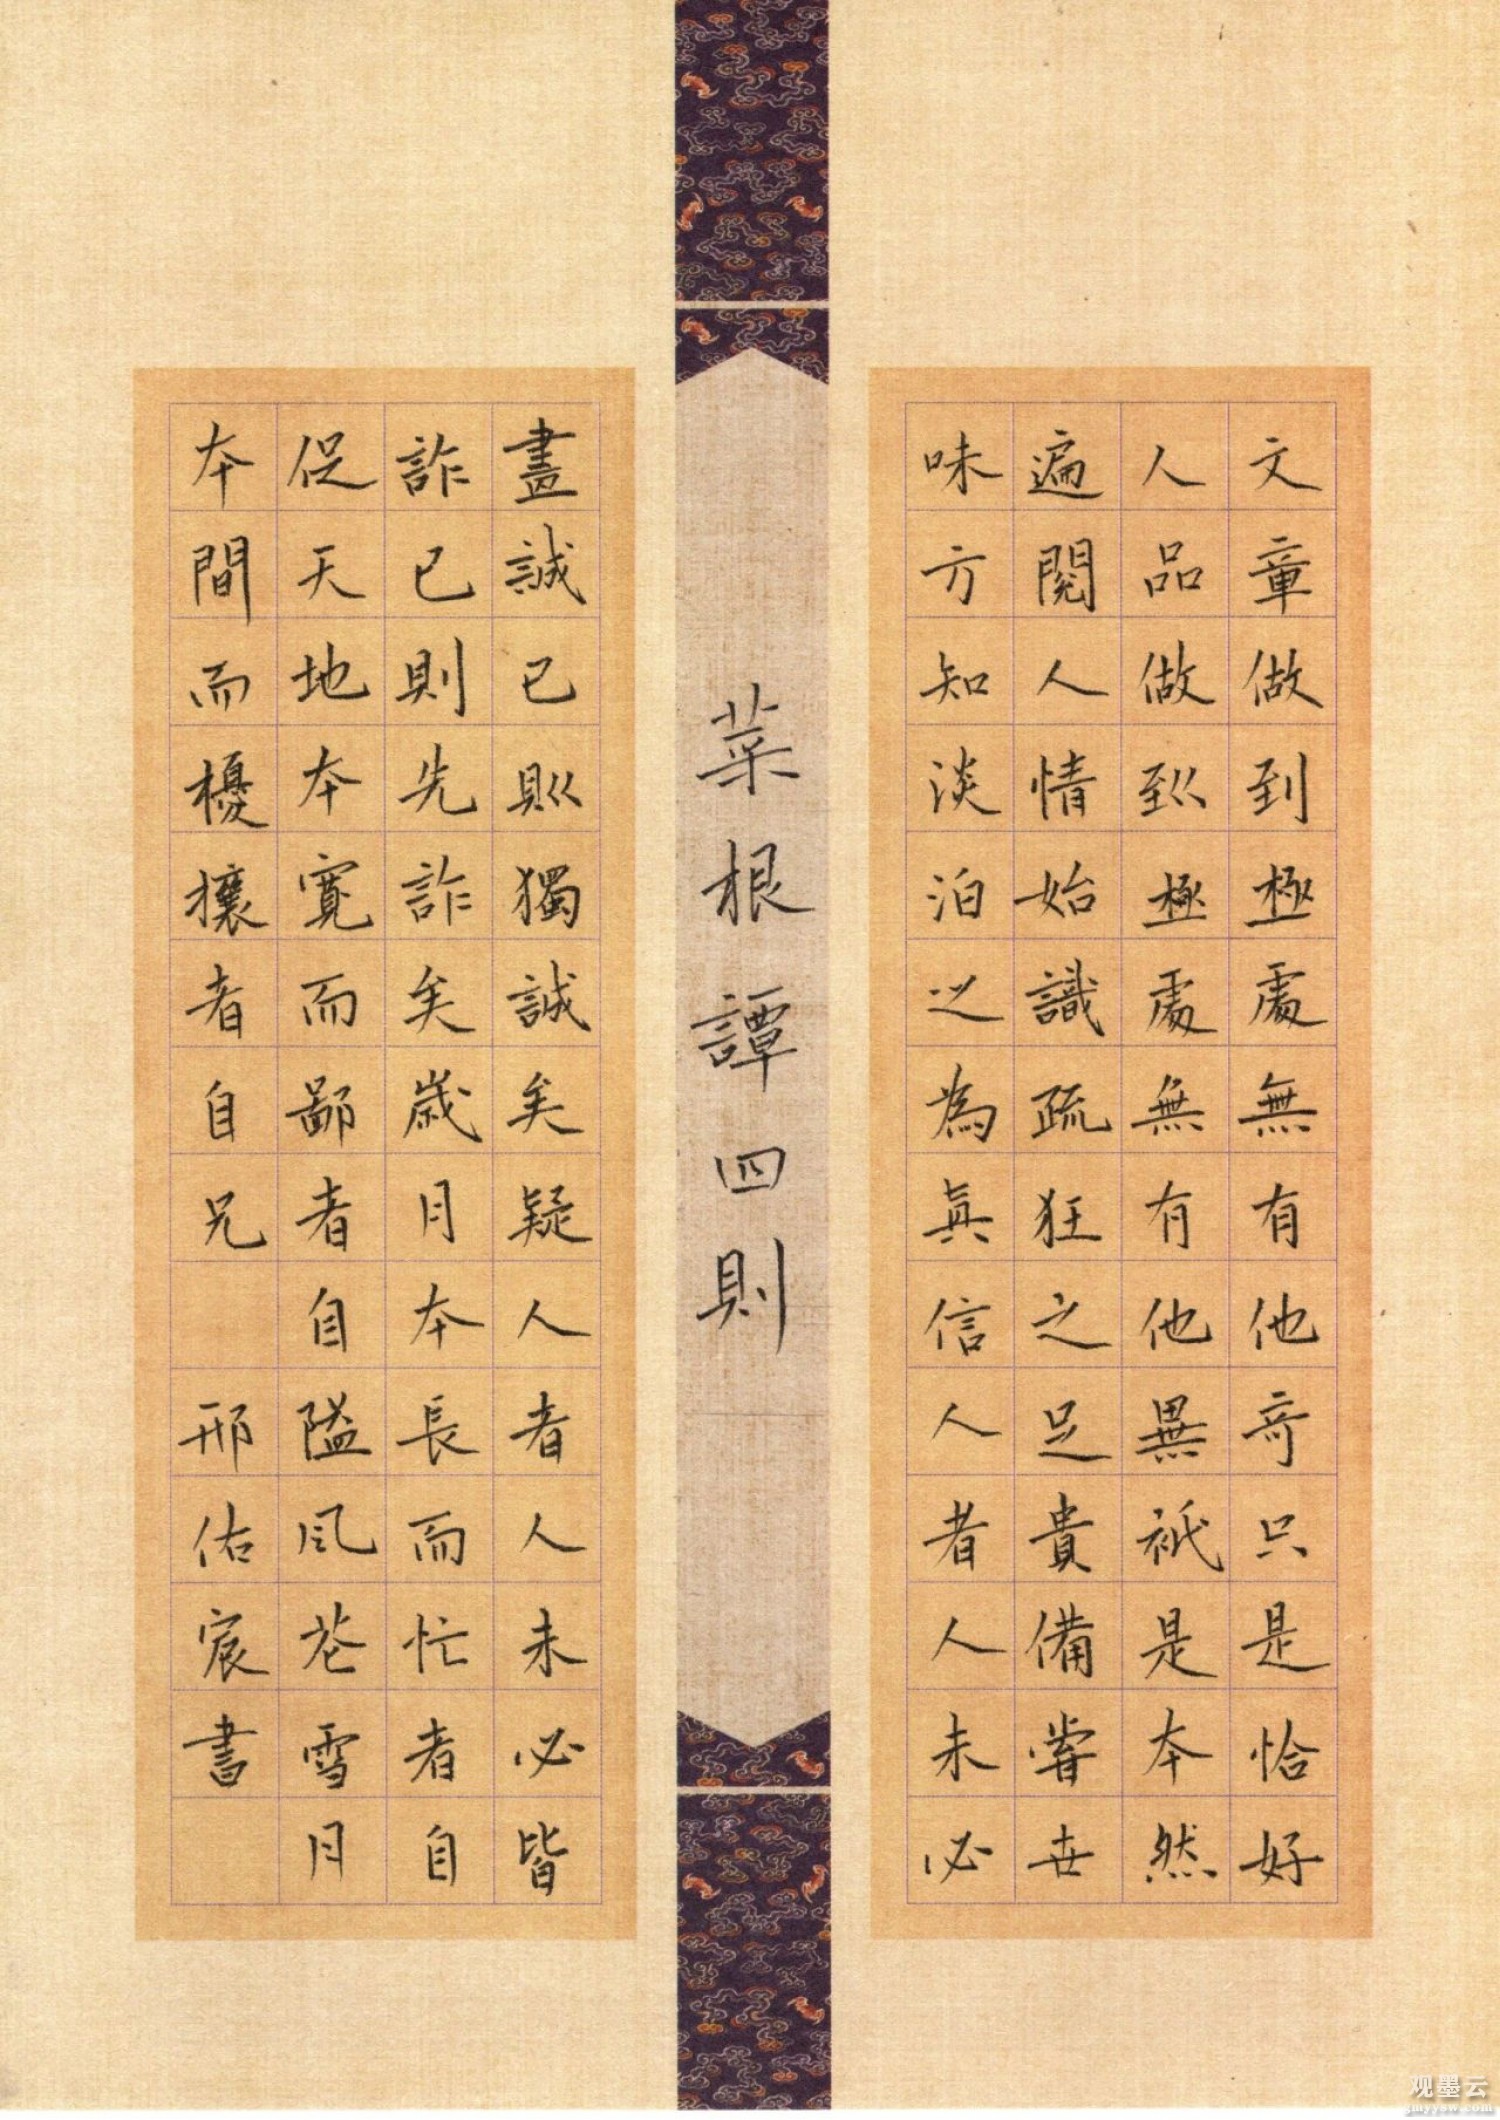 文章做到極處無有他奇只是恰好
人品做到極處無有他異祇是本然
遍閱人情始識疏狂之足貴備嘗世
味方知淡泊之為真信人者人未必
菜根譚四則
盡誠己則獨誠矣疑人者人未必皆
詐己則先詐矣歲月本長而忙者自
促天地本寬而鄙者自隘風花雪月
本間而擾攘者自兄 邢佑宸書
观墨云
gmyysw.com